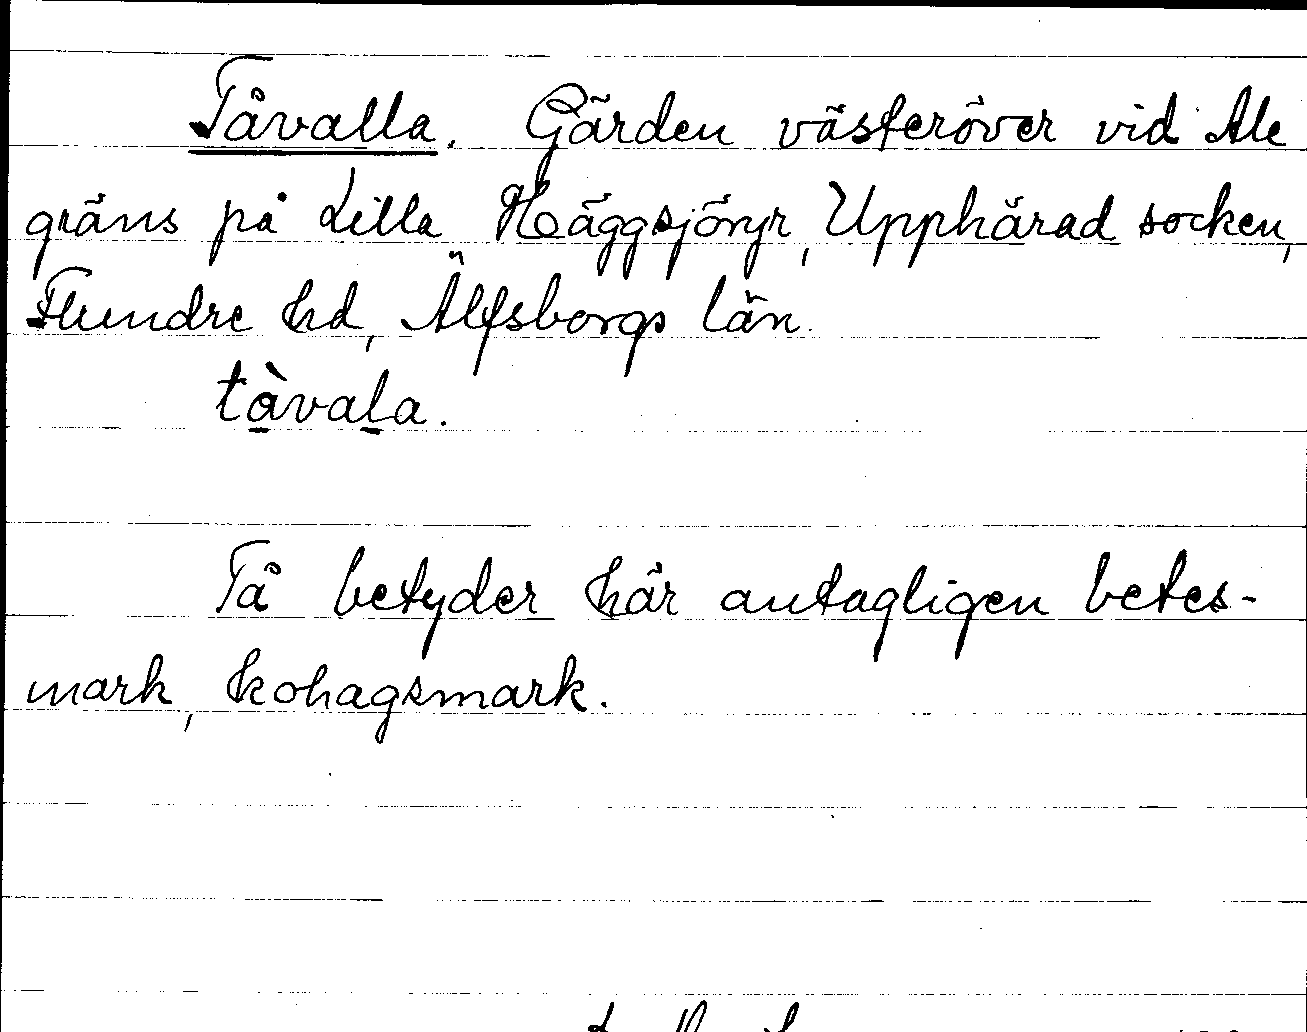 Tåvalla. Gärden västeröver vid Ale
gräns på Lilla Häggsjöryr, Upphärad socken,
Flundre hd, Älfsborgs län.
tàvala.
Tå betyder här antagligen betes-
mark, kohagsmark.